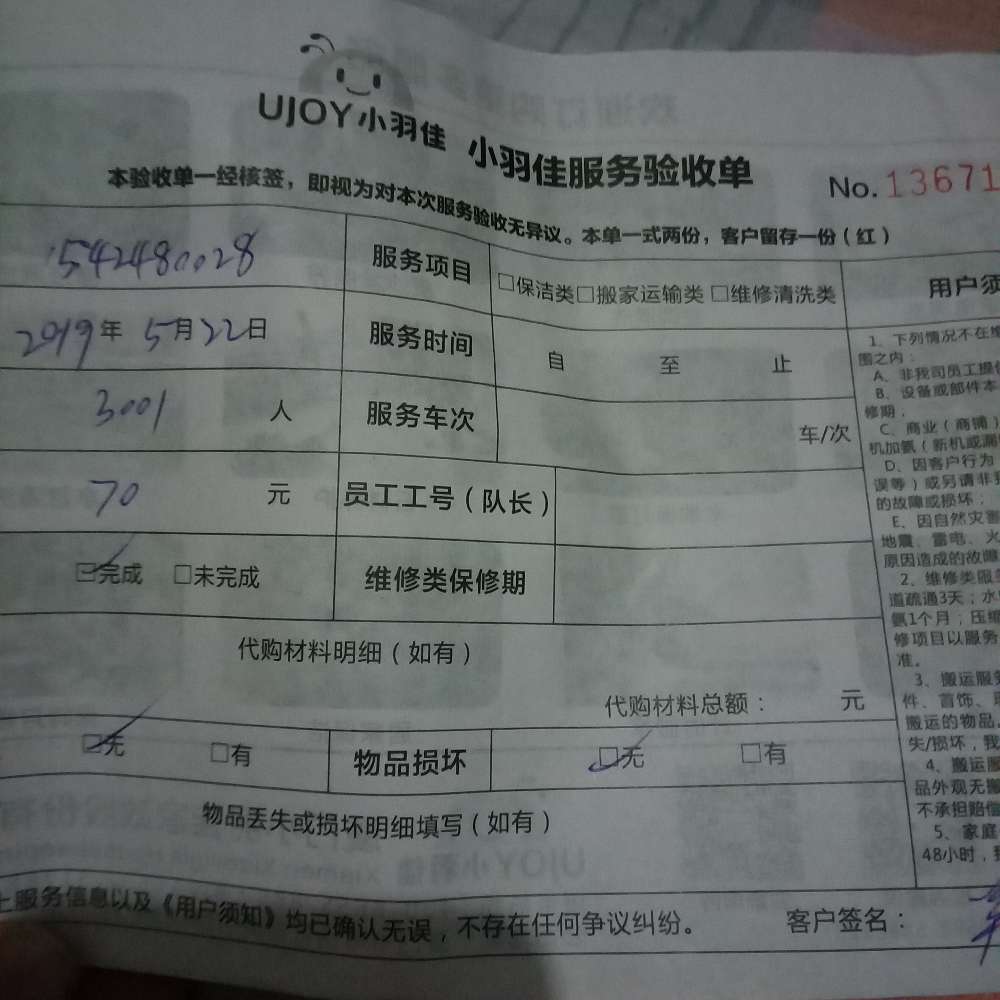 UJOY小羽佳 小羽佳服务验收单
No. 13671
本验收单一经核签，即视为对本次服务验收无异议。本单一式两份，客户留存一份（红）
1542480028 服务项目 □保洁类□搬家运输类 □维修清洗类
2019年 5月22日 服务时间 自 至 止
3001 人 服务车次 车/次
70 元 员工工号（队长）
完成 □未完成 维修类保修期
代购材料明细（如有）
代购材料总额： 元
无 □有 物品损坏 无 □有
物品丢失或损坏明细填写（如有）
上服务信息以及《用户须知》均已确认无误，不存在任何争议纠纷。 客户签名：
用户须
1、下列情况不在维
围之内：
A、非我司员工操作
B、设备或部件本
修期，
C、商业（商铺）
机加氨（新机或漏
D、因客户行为
误等）或另请非我
的故障或损坏；
E、因自然灾害
地震、雷电、火
原因造成的故障
2、维修类服务
道疏通3天；水
氨1个月；压缩
修项目以服务
准。
3、搬运服务
件、首饰、
搬运的物品
失/损坏，我
4、搬运服
品外观无搬
不承担赔偿
5、家庭
48小时，